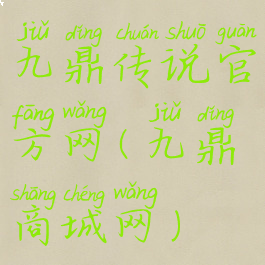 jiǔ dǐng chuán shuō guān
九鼎传说官
fāng wǎng jiǔ dǐng
方网(九鼎
shāng chéng wǎng
商城网)